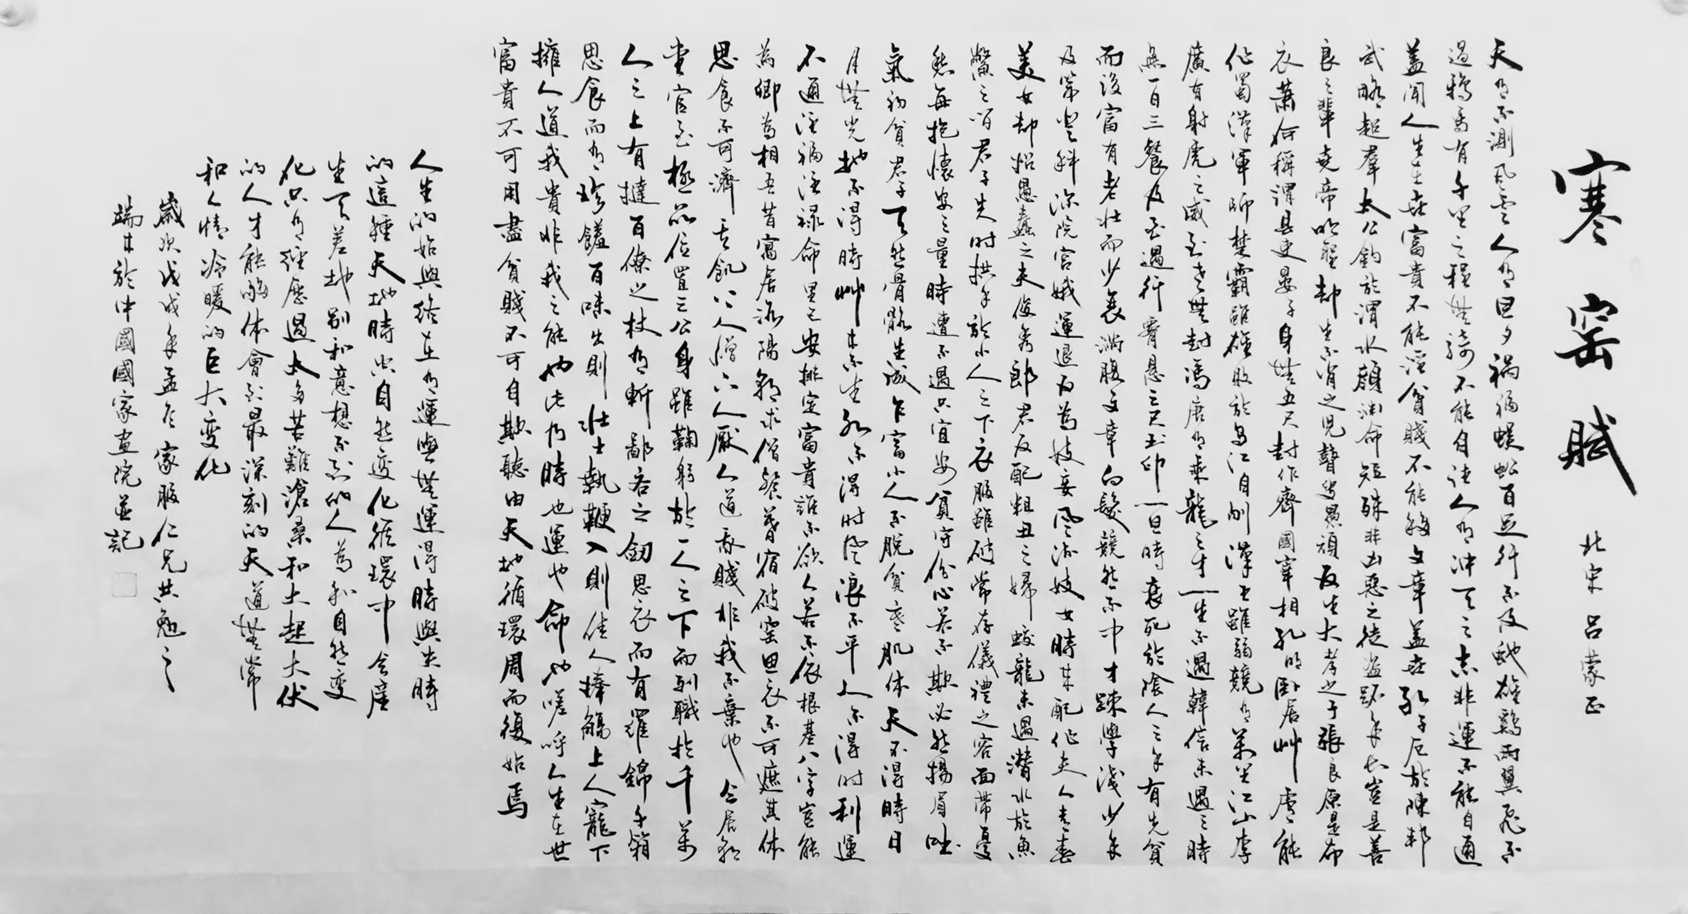 寒窑賦
北宋 吕蒙正
天有不測風雲人有旦夕禍福蜈蚣百足行不及蛇雄鷄兩翼飛不
過鴉馬有千里之程無騎不能自往人有冲天之志非運不能自通
蓋聞人生在世富貴不能淫貧賤不能移文章蓋世孔子厄於陳邦
武略超羣太公釣於渭水顔渊命短殊非凶惡之徒盗跖年長豈是善
良之輩堯帝明聖却生不肖之児瞽叟愚頑反生大孝之子張良原是布
衣蕭何稱謂县吏晏子身無五尺封作齊國宰相孔明卧居艸廬能
作蜀漢軍師楚霸雖雄敗於烏江自刎漢王雖弱競有萬里江山李
廣有射虎之威到老無封馮唐有乘龍之才一生不遇韓信未遇之時
無一日三餐及至遇行腰懸三尺玉印一旦時衰死於陰人之手有先貧
而後富有老壯而少衰滿腹文章白髮競然不中才疎學淺少年
及第登科深院宫娥運退反為妓妾風流妓女時来配作夫人青春
美女却招愚蠢之夫俊秀郎君反配粗丑之婦蛟龍未遇潜水於魚
鱉之間君子失時拱手於小人之下衣服雖破常存儀禮之容面帶憂
愁每抱懷安之量時遭不遇只宜安貧守份心若不欺必然揚眉吐
氣初貧君子天然骨骼生成乍富小人不脱貧寒肌体天不得時日
月無光地不得時艸木不生水不得时風浪不平人不得时利運
不通注福注禄命里已安排定富貴誰不欲人若不依根基八字豈能
為卿為相吾昔寓居洛陽朝求僧餐暮宿破窑思衣不可遮其体
思食不可濟其飢上人憎下人厭人道我賤非我不棄也今居朝
堂官至極品位置三公身雖鞠躬於一人之下而列職於千萬
人之上有撻百僚之杖有斬鄙吝之劒思衣而有羅錦千箱
思食而有珍饈百味出則壯士執鞭入則佳人捧觴上人寵下
擁人道我貴非我之能也此乃時也運也命也嗟呼人生在世
富貴不可用盡貧賤不可自欺聽由天地循環周而復始焉
人生的始與終在有運與無運得時與失時
的這種天地時空自然变化循環中會產
生天差地别和意想不到的人為和自然变
化只有經歷過太多苦難滄桑和大起大伏
的人才能够体會到最深刻的天道無常
和人情冷暖的巨大变化
歲次戊戌年孟冬家服仁兄共勉之
端木於中國國家画院並記